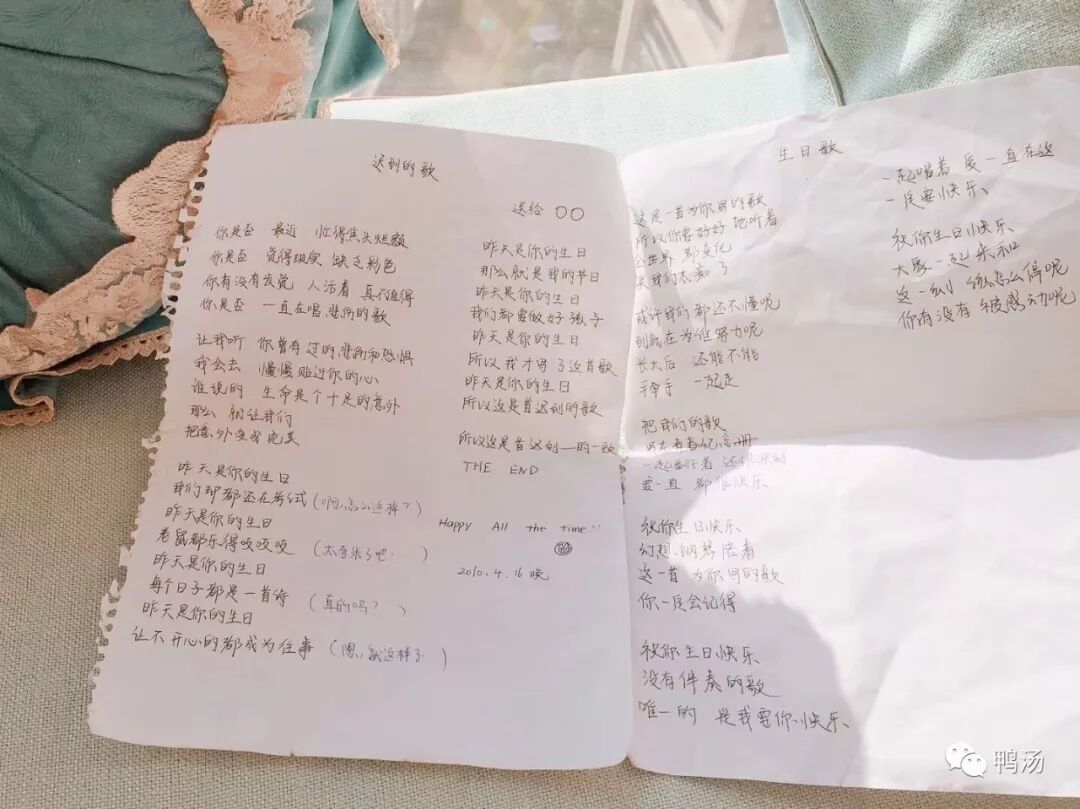 迟到的歌
送给 〇〇
你是否 最近 忙得焦头烂额
你是否 觉得现实 缺乏彩色
你有没有发觉 人活着 真不值得
你是否 一直在唱 悲伤的歌
让我听 你曾有过的悲伤和恐惧
我会去 慢慢贴近你的心
谁说的 生命是个十足的意外
那么 就让我们
把意外变成完美
昨天是你的生日
我们却都还在考试(啊,怎么这样?)
昨天是你的生日
老鼠都乐得吱吱吱 (太夸张了吧...)
昨天是你的生日
每个日子都是一首诗 (真的吗?)
昨天是你的生日
让不开心的都成为往事 (嗯,就这样了.)
昨天是你的生日
那么就是我的节日
昨天是你的生日
我们都要做好孩子
昨天是你的生日
所以我才写了这首歌
昨天是你的生日
所以这是首迟到的歌
所以这是首迟到—的—歌
THE END
Happy All the time
2010.4.16 晚
生日歌
这是一首为你写的歌
所以你要好好地听着
全世界都变化
或许我们都还不懂呢
到底在为谁努力呢
长大后 还能不能
牵牵手 一起走
把我们的歌
爱一直 都很快乐
祝你生日快乐
幻想,
这一首为你写的歌
你一定会记得
祝你生日快乐
没有伴奏的歌
唯一的 是我要你快乐
一起唱着 爱一直在这
一定要快乐
祝你生日快乐
大家一起来和
这一刻 怎么停呢
你有没有被感动呢
鸭汤